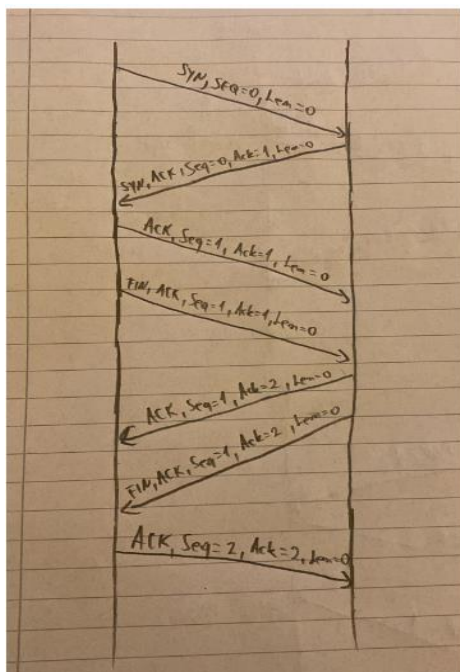 SYN, SEQ=0, Len=0
SYN, ACK, Seq=0, Ack=1, Len=0
ACK, Seq=1, Ack=1, Len=0
FIN, ACK, Seq=1, Ack=1, Len=0
ACK, Seq=1, Ack=2, Len=0
FIN, ACK, Seq=1, Ack=2, Len=0
ACK, Seq=2, Ack=2, Len=0